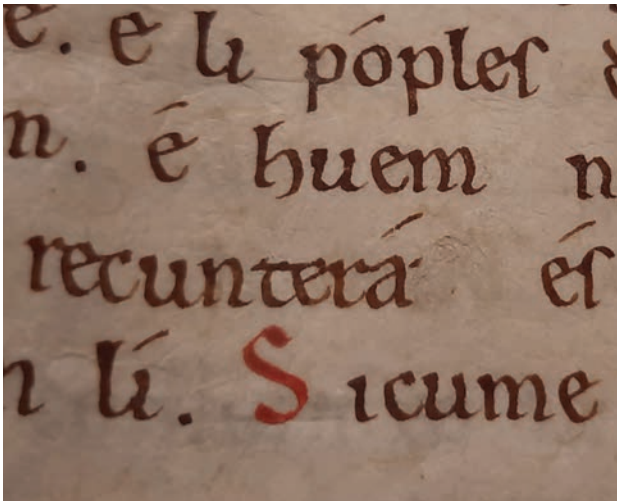 e. e li pópleſ
n. é huem n
recunterá éſ
n lí. Sicume